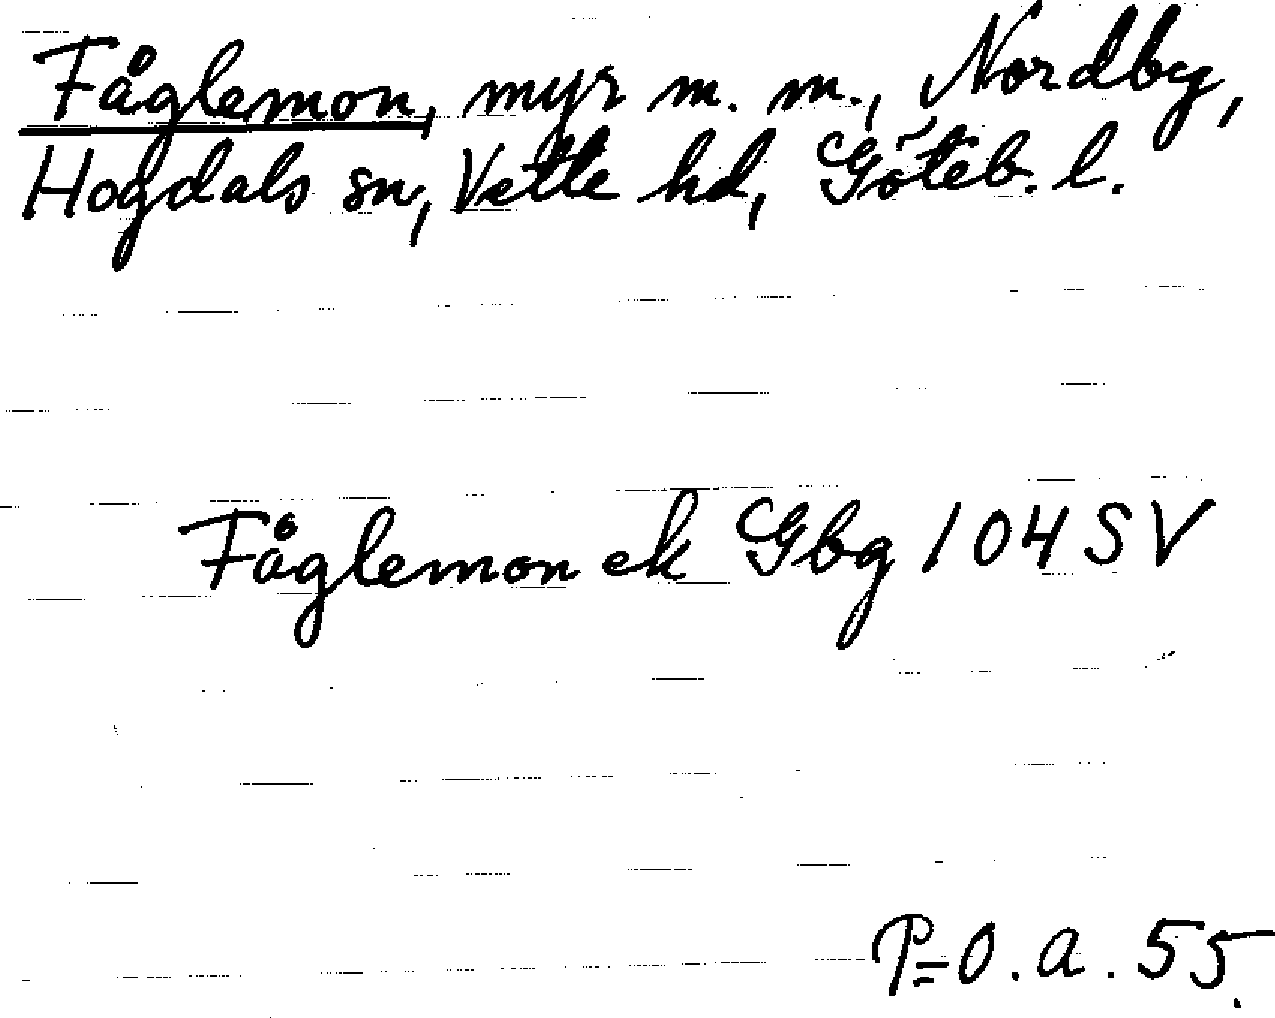 Fåglemon, myr m. m., Nordby,
Hogdals sn, Vette hd, Göteb. l.
Fåglemon ek Gbg 104 SV
P=O. a. 55.